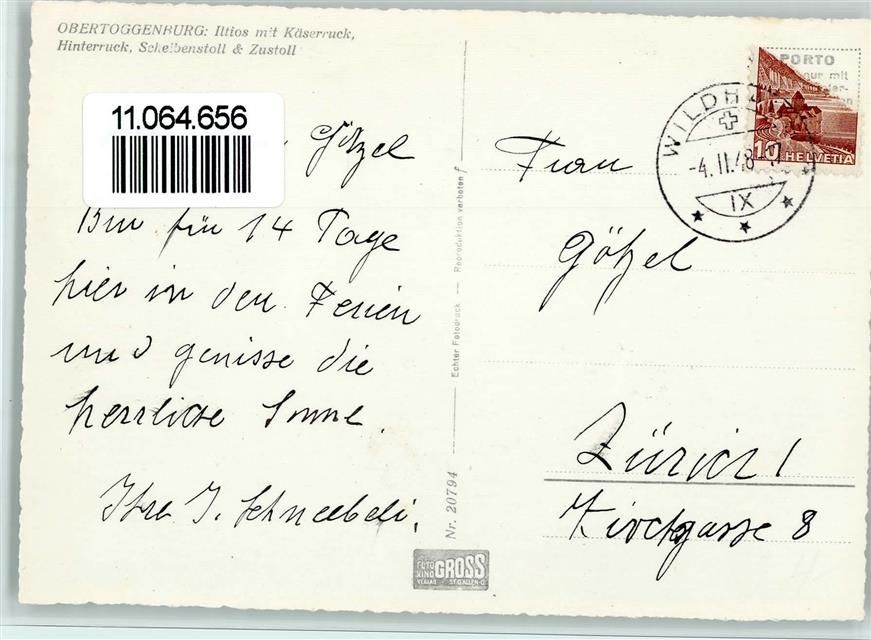 OBERTOGGENBURG: Iltios mit Käserruck,
Hinterruck, Scheibenstoll & Zustoll
11.064.656
Götzel
Bin für 14 Tage
hier in den Ferien
und genisse die
herrliche Sonne.
Ihre J. Schneebeli.
Nr. 20794
Echter Fotodruck — Reproduktion verboten
FOTO
KINO GROSS
VERLAG ST. GALLEN-O
PORTO
nur mit
10 HELVETIA
WILDH
-4.II.48-17
IX
Frau
Götzel
Zürich 1
Kirchgasse 8